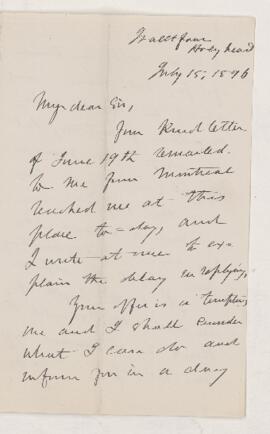 Holyhead
July 15, 1896
My dear Sir,
Your kind letter
of June 19th remailed
to me from Montreal
reached me at this
place to-day, and
I write at once to ex-
plain the delay in replying.
Your offer is a tempting
one and I shall consider
what I can do and
inform you in a day